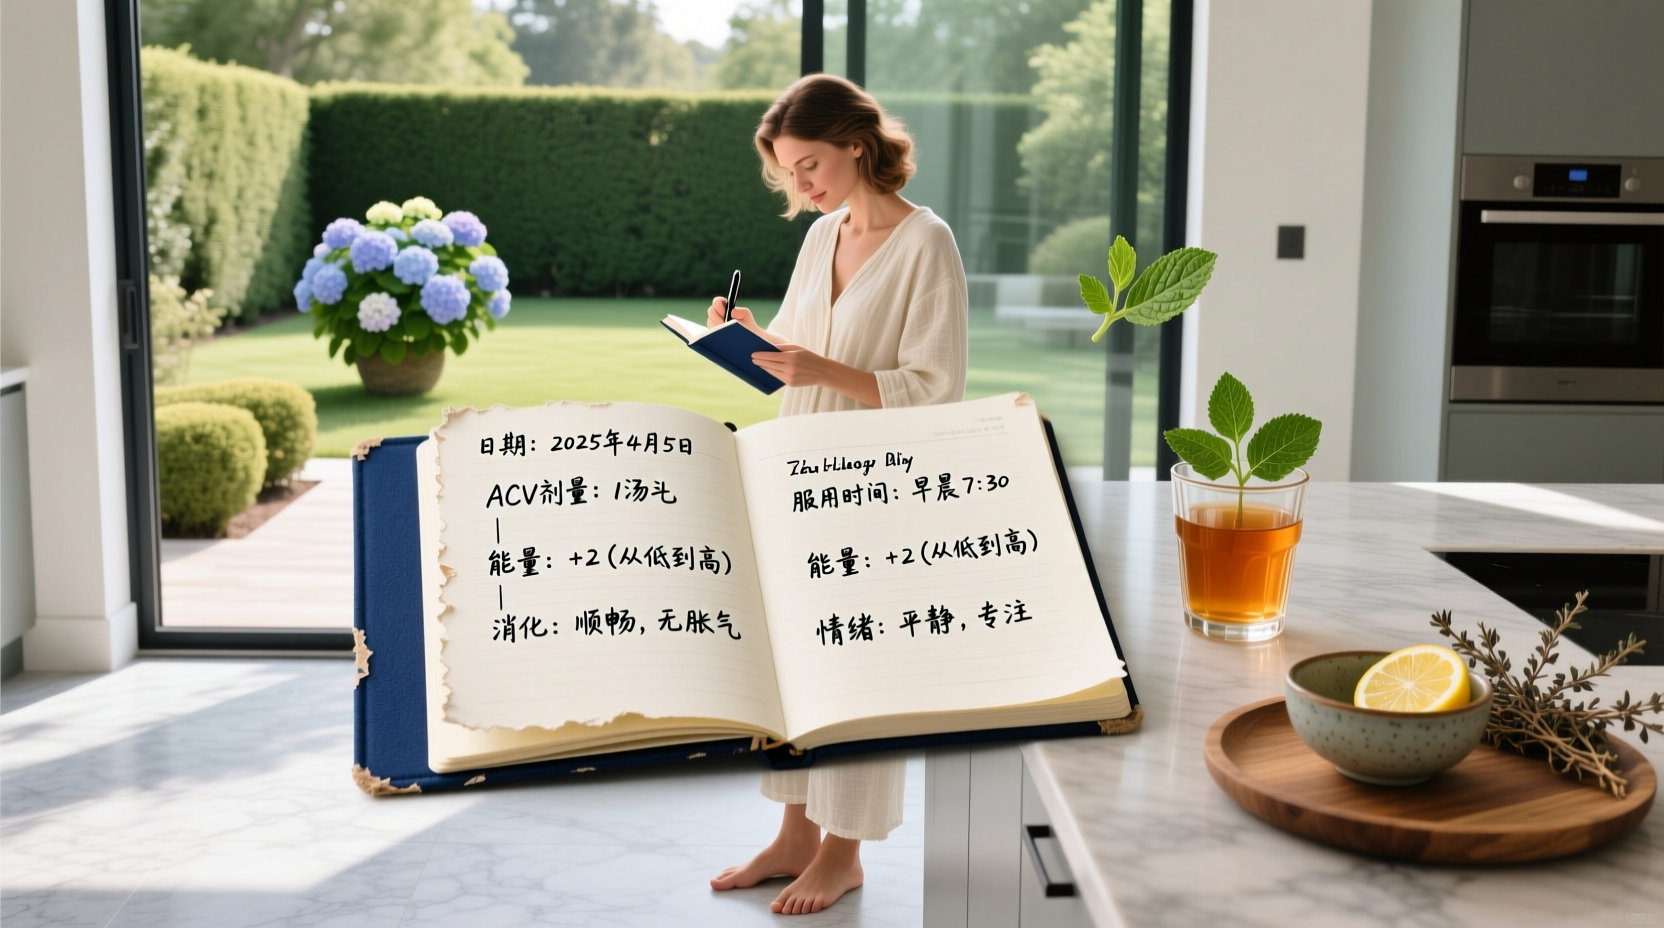 日期：2025年4月5日
ACV剂量：1汤头
能量：+2（从低到高）
消化：顺畅，无胀气
服用时间：早晨7:30
能量：+2（从低到高）
情绪：平静，专注